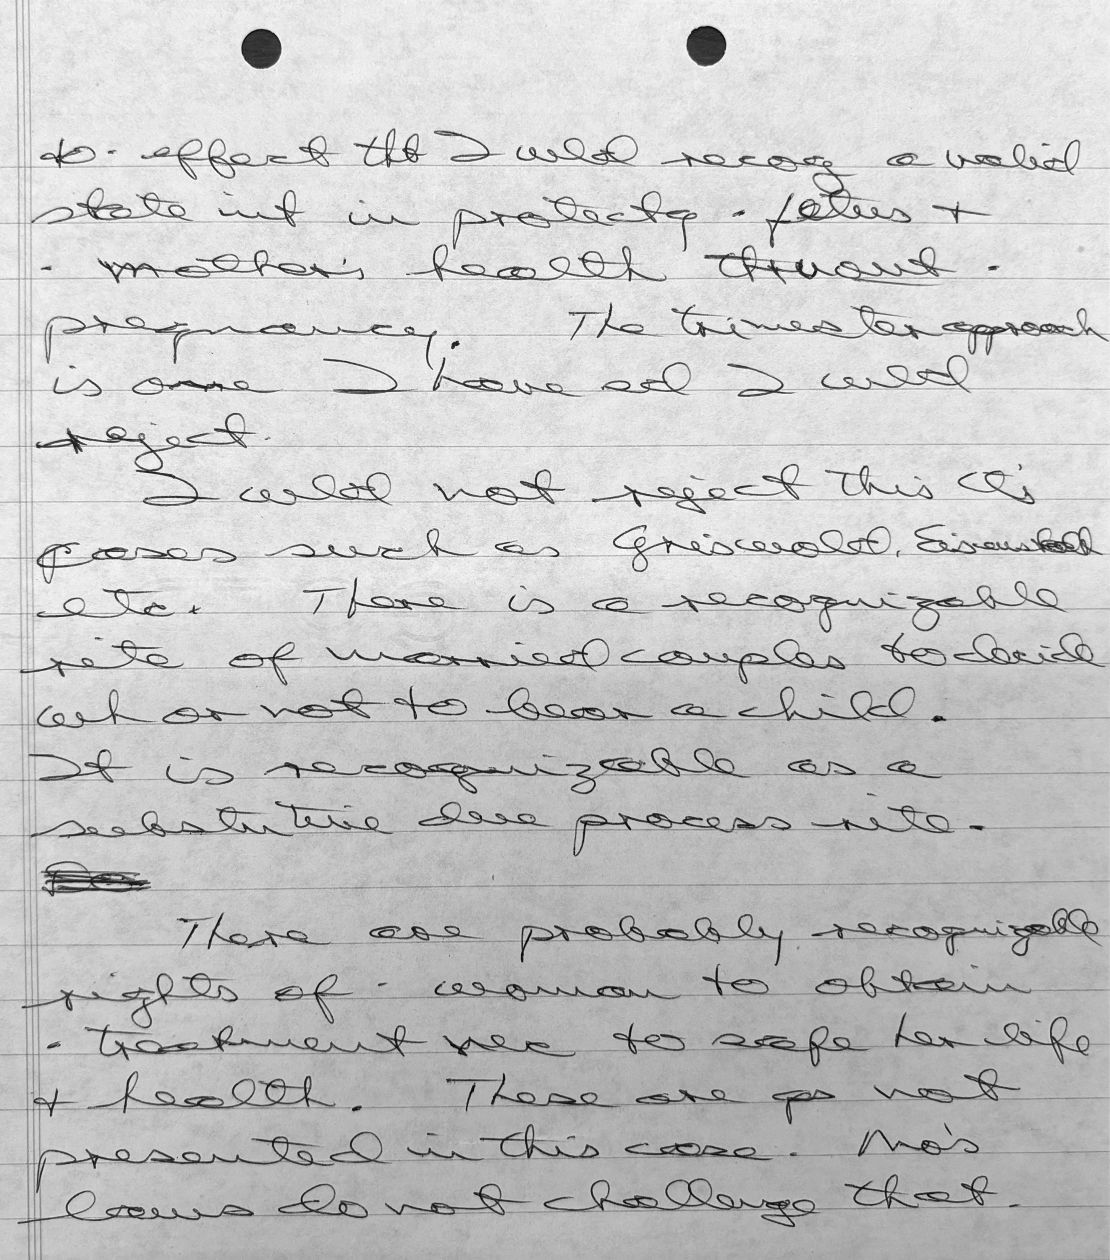 to · effect tht I wld recog a valid
state int in protectg · fetus +
· mother's health thruout ·
pregnancy. The trimester approach
is one I have and I wld
reject.
I wld not reject this Ct's
cases such as Griswold, Eisenstadt
etc. There is a recognizable
rite of married couples to decide
wh or not to bear a child.
It is recognizable as a
substantive due process rite.
There are probably recognizable
rights of · woman to obtain
· treatment nec to safe her life
+ health. These are qs not
presented in this case. Mo's
laws do not challenge that.